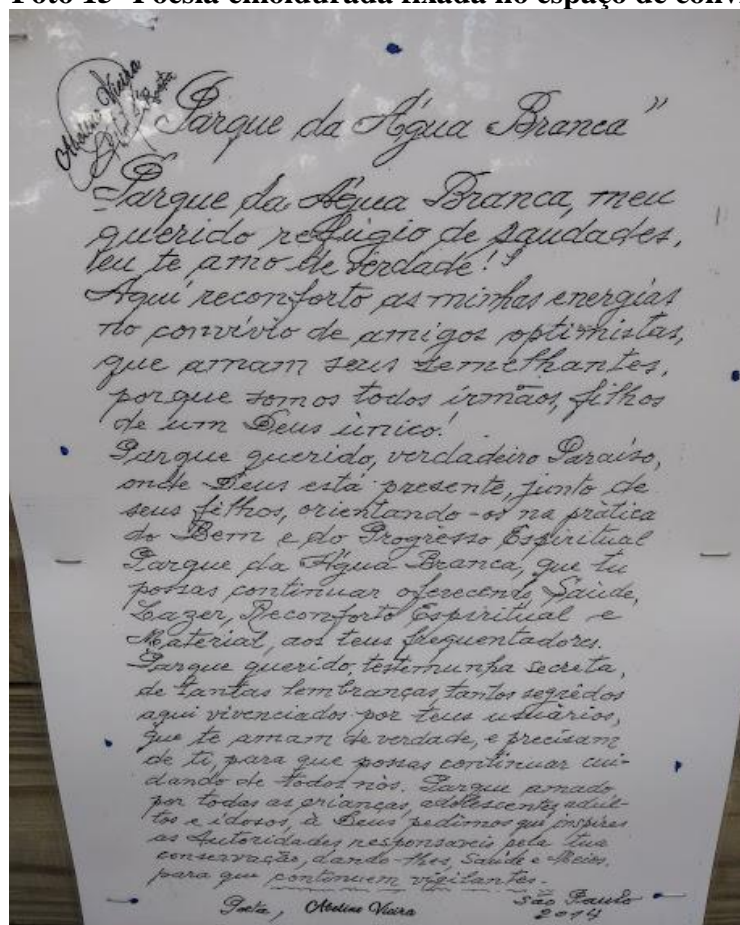 Foto 15- Poesia emoldurada fixada no espaço de conv
Vieira
Poeta
"Parque da Água Branca"
Parque da Água Branca, meu
querido refúgio de saudades,
eu te amo de verdade!
Aqui reconforto as minhas energias
no convívio de amigos optimistas,
que amam seus semelhantes,
porque somos todos irmãos, filhos
de um Deus único!
Parque querido, verdadeiro Paraíso,
onde Deus está presente, junto de
seus filhos, orientando-os na prática
do Bem e do Progresso Espiritual
Parque da Água Branca, que tu
possas continuar oferecendo Saúde,
Lazer, Reconforto Espiritual e
Material, aos teus frequentadores.
Parque querido, testemunha secreta,
de tantas lembranças, tantos segrêdos
aqui vivenciados por teus usuários,
que te amam de verdade, e precisam
de ti, para que possas continuar cui-
dando de todos nós. Parque amado
por todas as crianças, adolescentes, adul-
tos e idosos, à Deus pedimos que inspires
as Autoridades responsaveis pela tua
conservação, dando-lhes, Saúde e Meios,
para que continuem vigilantes.-
Poeta, Abelino Vieira
São Paulo
2014